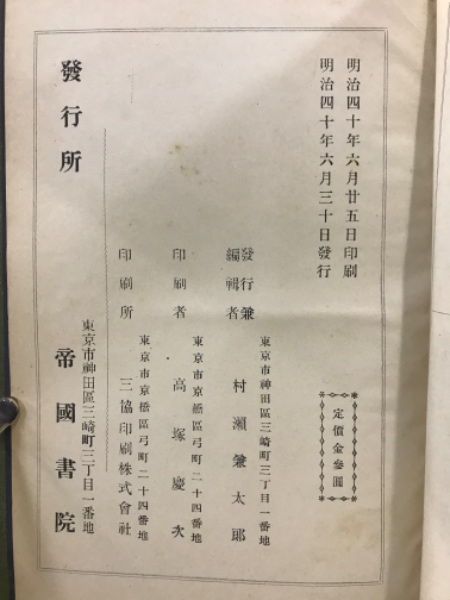 明治四十年六月廿五日印刷
明治四十年六月三十日發行
定價金參圓
發行兼
編輯者
東京市神田區三崎町三丁目一番地
村瀨兼太郎
印刷者
東京市京橋區弓町二十四番地
高塚慶次
印刷所
東京市京橋區弓町二十四番地
三協印刷株式會社
發行所
東京市神田區三崎町三丁目一番地
帝國書院